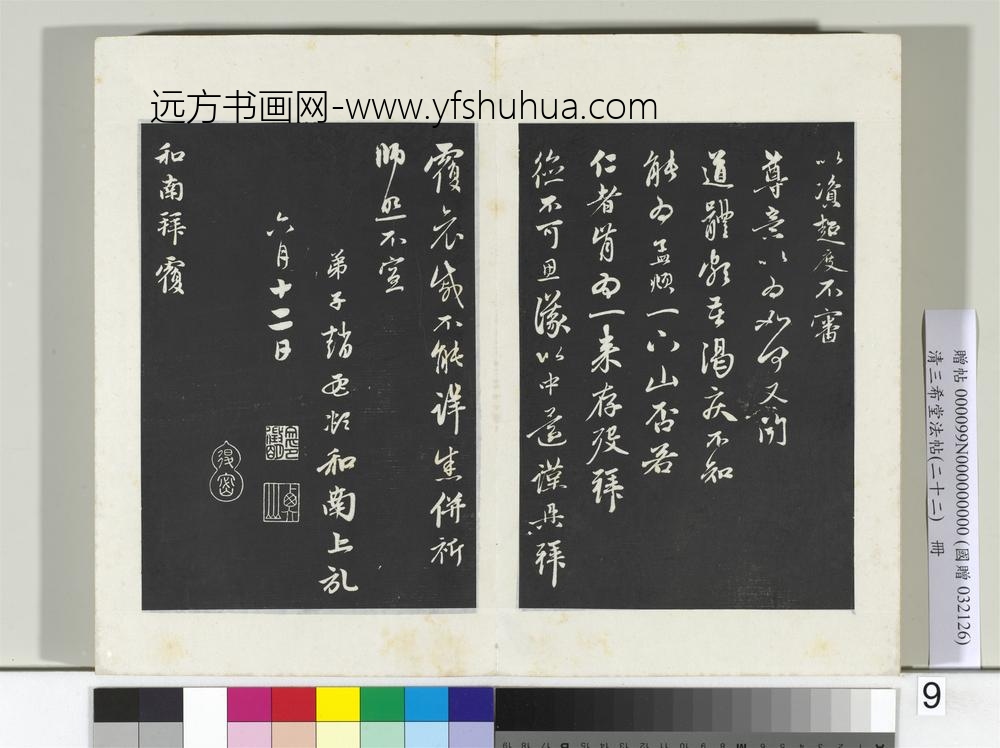 远方书画网-www.yfshuhua.com
以資超度不審
尊意以為如何又聞
道體頗苦渴疾不知
能為孟頫一下山否若
仁者肯為一来存殁拜
德不可思議以中還謹具拜
覆哀感不能詳悉併祈
師照不宣
弟子趙孟頫和南上記
六月十二日
和南拜覆
贈帖 000099N000000000 (國贈 032126)
清三希堂法帖(二十二) 冊
9